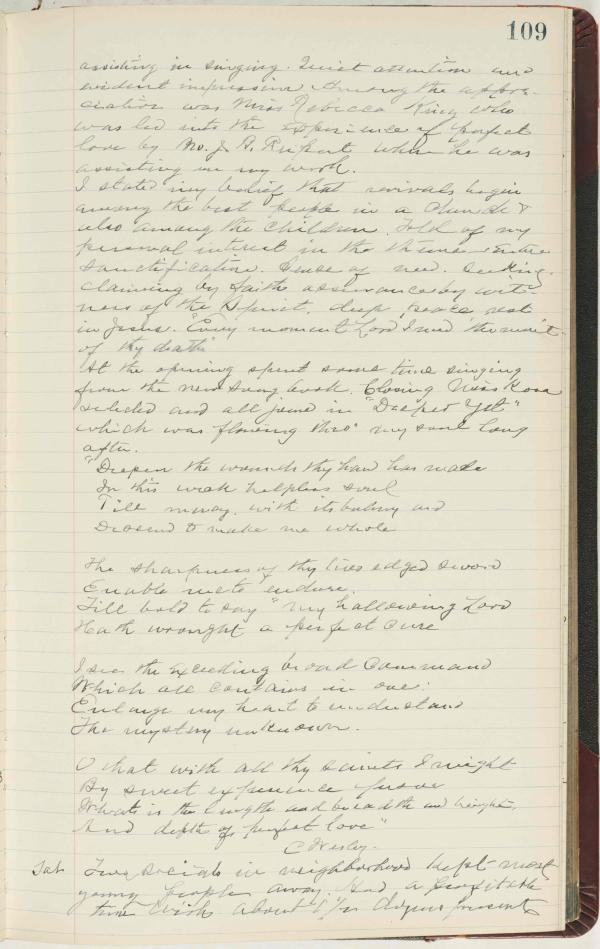 109
assisting in singing. Quiet attention and
evident impression Among the appre-
ciative was Miss Rebecca King who
was led into the experience of perfect
love by Mr. J. R. Rupert when he was
assisting in my work.
I stated my belief that revivals begin
among the best people in a church &
also among the children. Told of my
personal interest in the theme entire
sanctification. Sense of need. Seeking.
claiming by faith assurance by wit-
ness of the Spirit. deep peace rest
in Jesus. "Every moment Lord I need the merit
of thy death"
At the opening spent some time singing
from the new song book. Closing Miss Rosa
selected and all joined in "Deeper Yet"
which was flowing thro' my soul long
after.
"Deepen the wounds thy hand has made
In this weak helpless soul
Till mercy, with its balmy aid
Descend to make me whole
The sharpness of thy two edged sword
Enable me to endure.
Till bold to say "my hallowing Lord
Hath wrought a perfect cure
I see the exceeding broad command
Which all contains in one:
Enlarge my heart to understand
The mystery unknown.
O that with all thy saints I might
By sweet experience prove
What is the length and breadth and height,
And depth of perfect love"
C Wesley.
Sat. Two socials in neighborhood kept most
young people away. And a profitable
time with about present